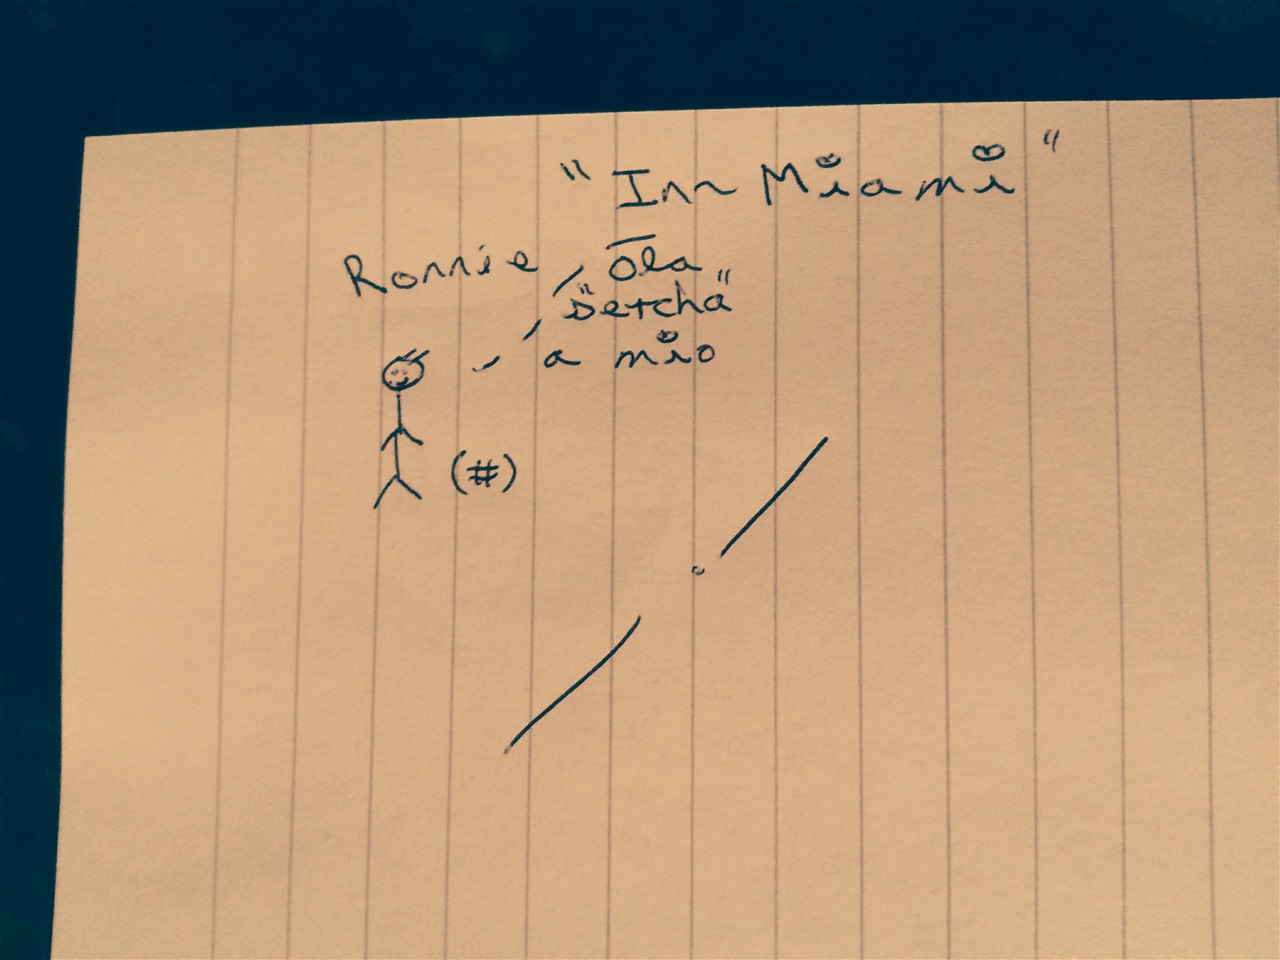 "Inn Miami"
Ronnie
Ola
"Setcha"
a mio
(#)